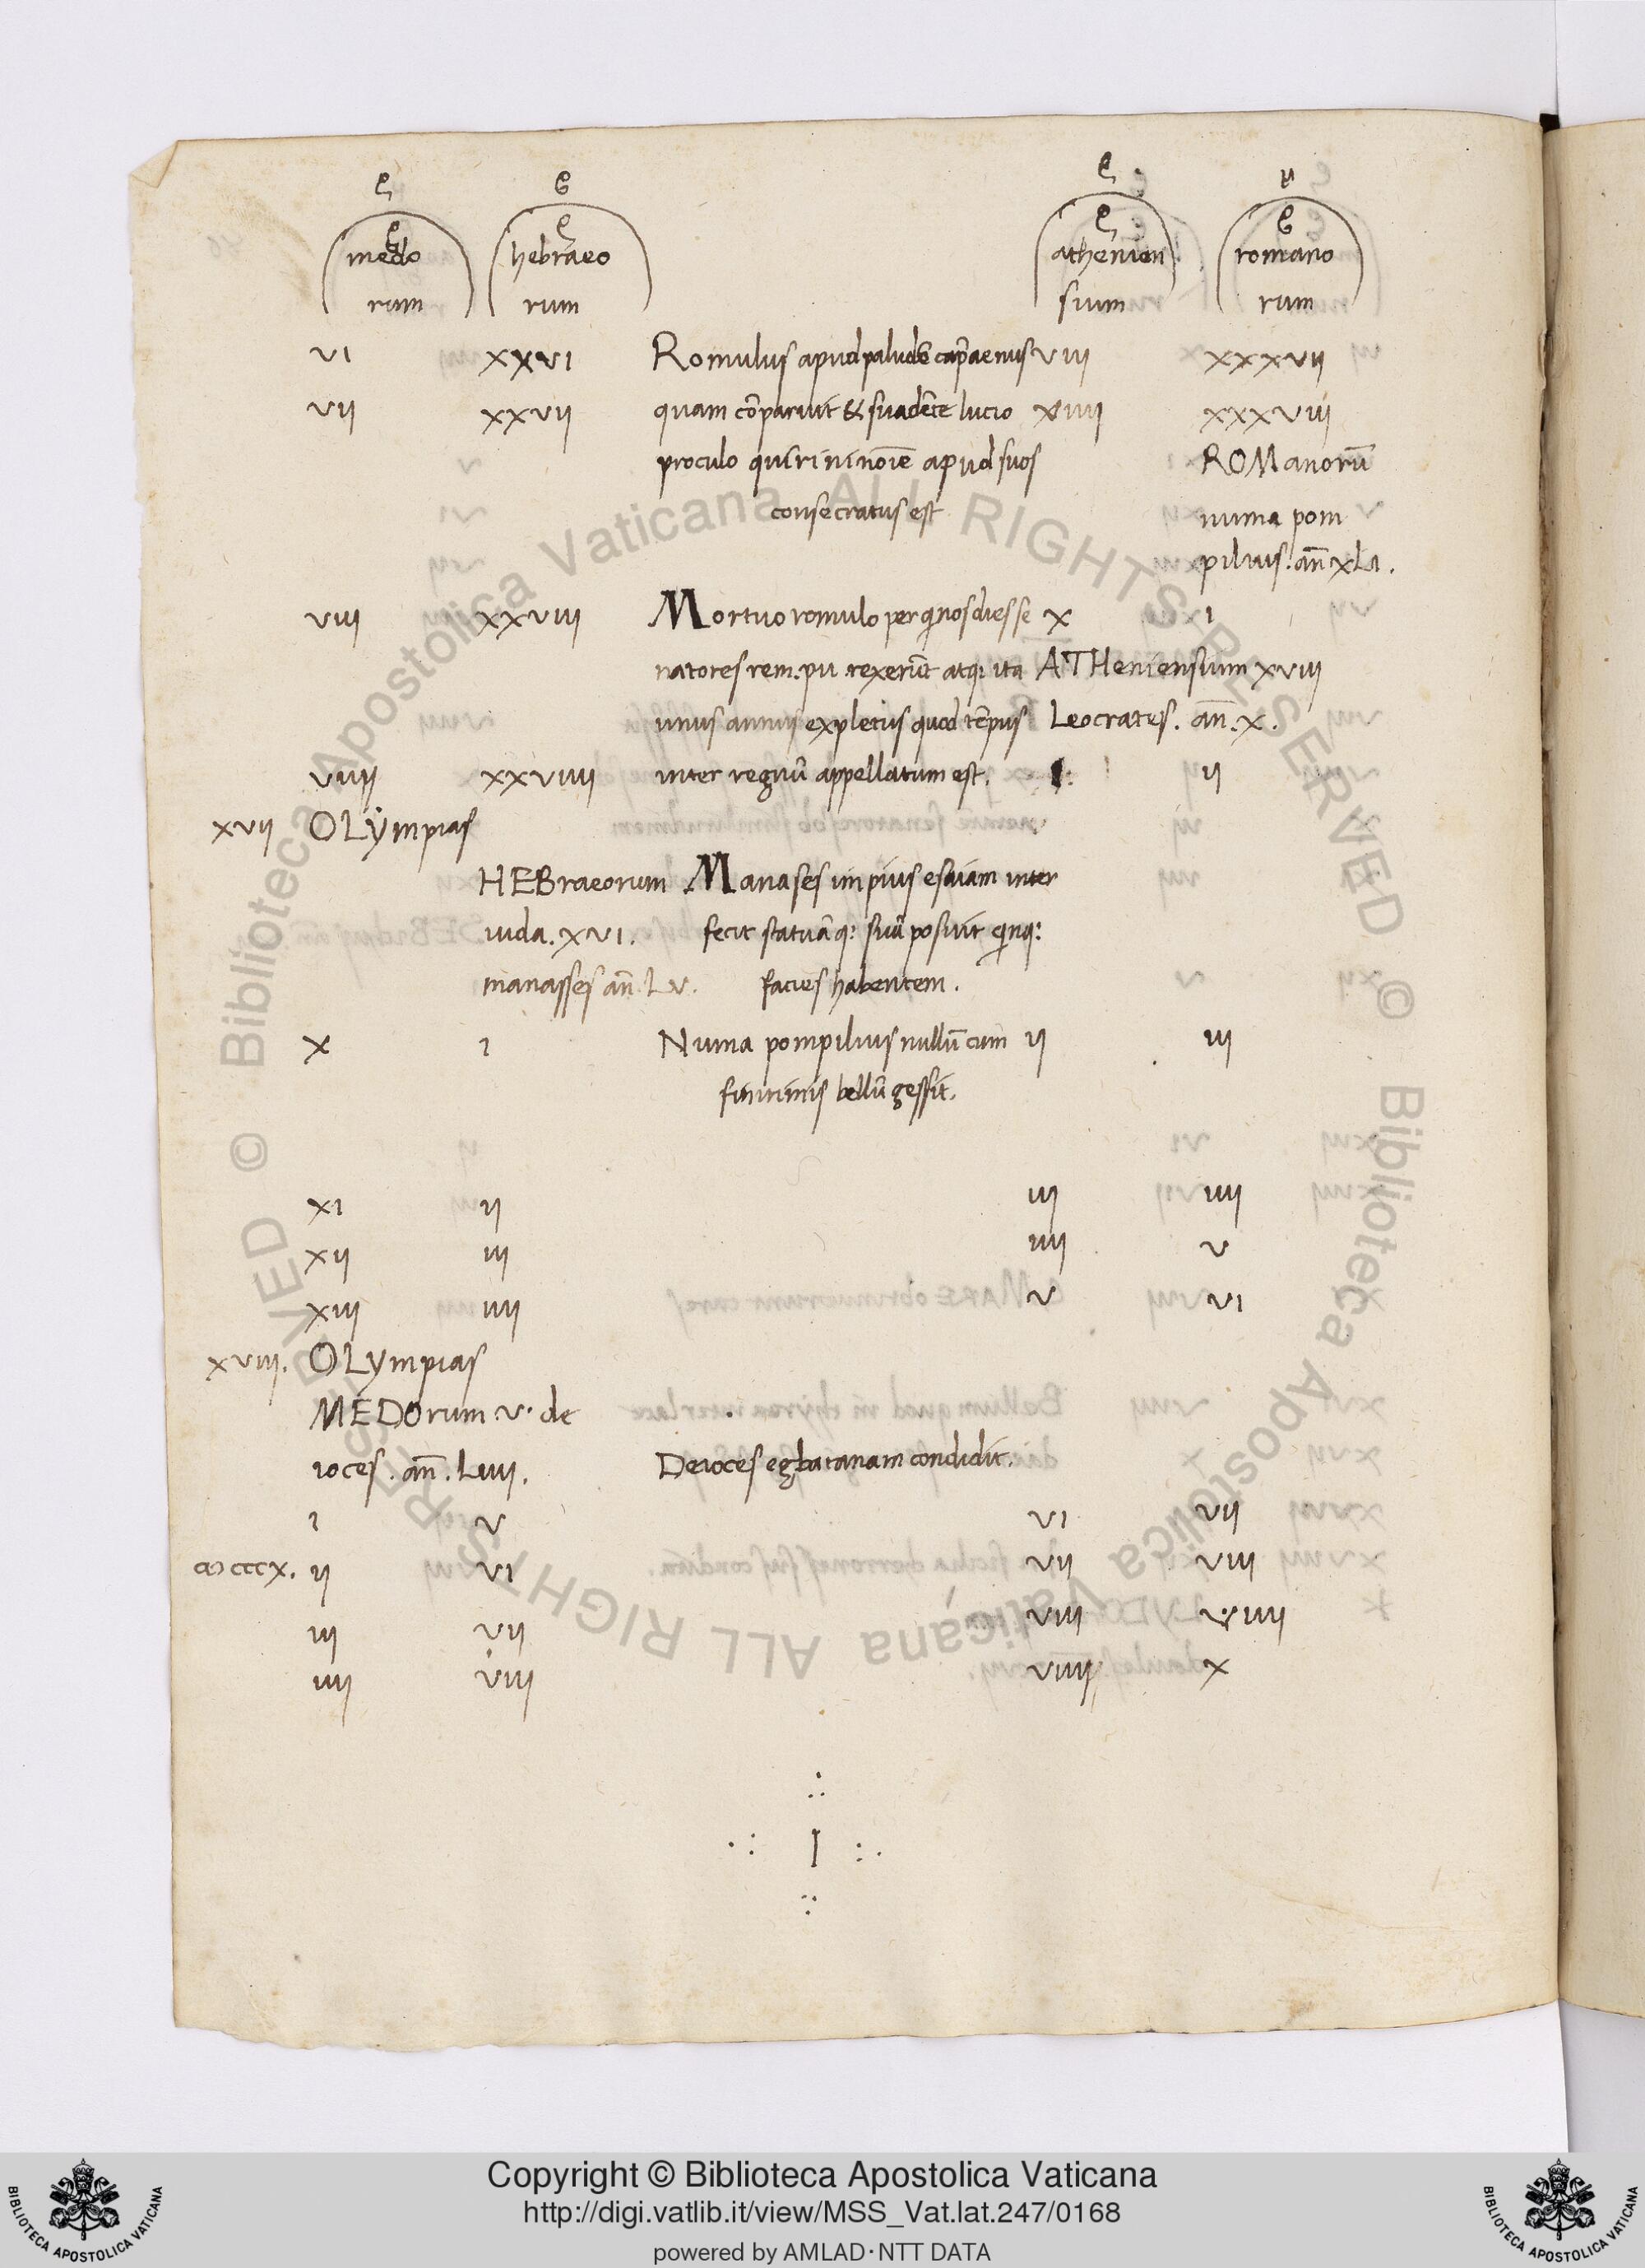 medo hebraeo athenien romano
rum rum sium rum
VI XXVI Romulus apud paludē cap̄ae nus VIII XXXVII
VII XXVII quam cōparuit & suadēte lucio VIIII XXXVIII
proculo quirini noīe apud suos ROManorū
consecratus est numa pom
pilius. añ XLI.
VIII XXVIII Mortuo romulo per q̇nos dies se X I
natores rem. pu. rexerūt atq; ita ATHeniensium XVIII
unus annus expletus quod tēpus Leocrates. añ. X.
VIIII XXVIIII inter regnū appellatum est. I. II
XVII OLympias
HEBraeorum Manases impius esaiam inter
iuda. XVI. fecit statuāq; suā posuit q̇nq;
manasses añ. LV. facies habentem.
X I Numa pompilius nullū cum II III
finitimis bellū gessit.
XI II III IIII
XII III IIII V
XIII IIII V VI
XVIII. OLympias
MEDOrum V. de
ioces. añ. LIIII. Deioces egbatanam condidit.
I V VI VII
ꝏcccx. II VI VII VIII
III VII VIII VIIII
IIII VIII VIIII X
Biblioteca Apostolica Vaticana ALL RIGHTS RESERVED ©
Biblioteca Apostolica Vaticana ALL RIGHTS RESERVED ©
Copyright © Biblioteca Apostolica Vaticana
http://digi.vatlib.it/view/MSS_Vat.lat.247/0168
powered by AMLAD·NTT DATA
BIBLIOTECA APOSTOLICA VATICANA
BIBLIOTECA APOSTOLICA VATICANA